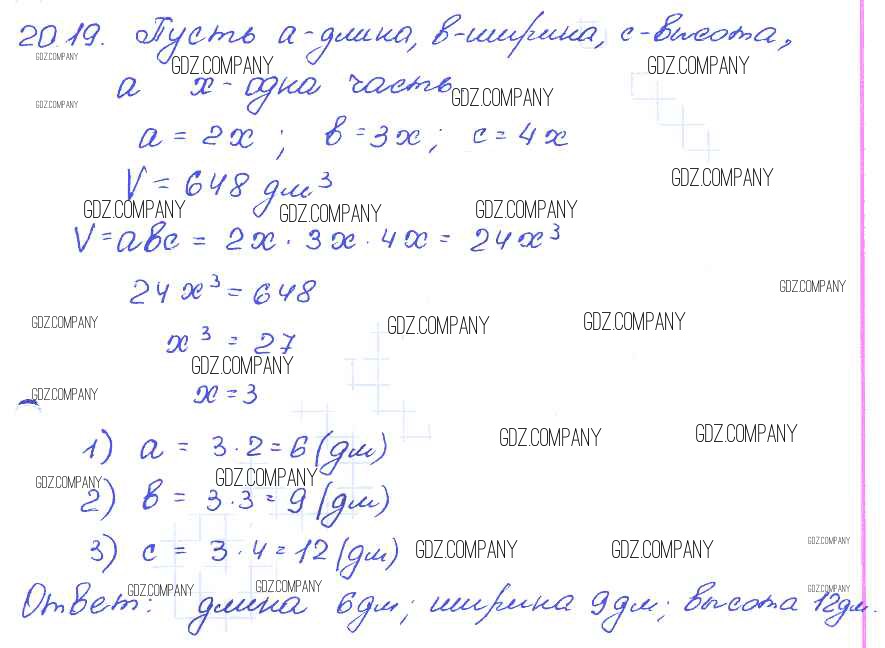 20.19. Пусть а-длина, в-ширина, с-высота,
GDZ.COMPANY GDZ.COMPANY GDZ.COMPANY
а х-одна часть
GDZ.COMPANY GDZ.COMPANY
а = 2х ; в = 3х ; с = 4х
GDZ.COMPANY
V = 648 дм³
GDZ.COMPANY GDZ.COMPANY GDZ.COMPANY
V = авс = 2х · 3х · 4х = 24х³
24х³ = 648
GDZ.COMPANY
GDZ.COMPANY GDZ.COMPANY GDZ.COMPANY
х³ = 27
GDZ.COMPANY
GDZ.COMPANY х = 3
GDZ.COMPANY GDZ.COMPANY
1) а = 3 · 2 = 6 (дм)
GDZ.COMPANY GDZ.COMPANY
2) в = 3 · 3 = 9 (дм)
3) с = 3 · 4 = 12 (дм) GDZ.COMPANY GDZ.COMPANY GDZ.COMPANY
GDZ.COMPANY GDZ.COMPANY GDZ.COMPANY
Ответ: длина 6дм; ширина 9дм; высота 12дм.